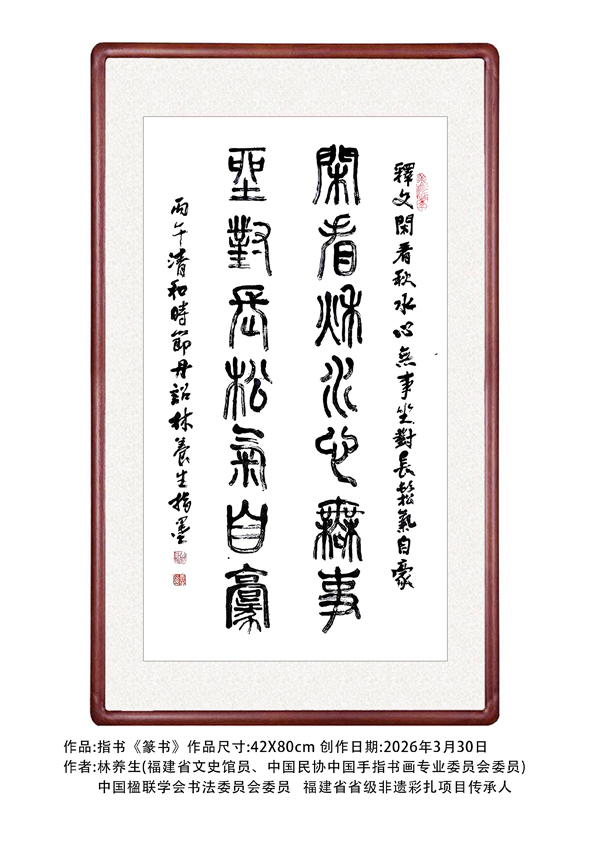 釋文閑看秋水心無事坐對長鬆氣自豪
閑看秋水心無事
坐對長松氣自豪
丙午清和時節丹詔林養生指墨
作品:指书《篆书》作品尺寸:42X80cm 创作日期:2026年3月30日
作者:林养生(福建省文史馆员、中国民协中国手指书画专业委员会委员)
中国楹联学会书法委员会委员 福建省省级非遗彩扎项目传承人